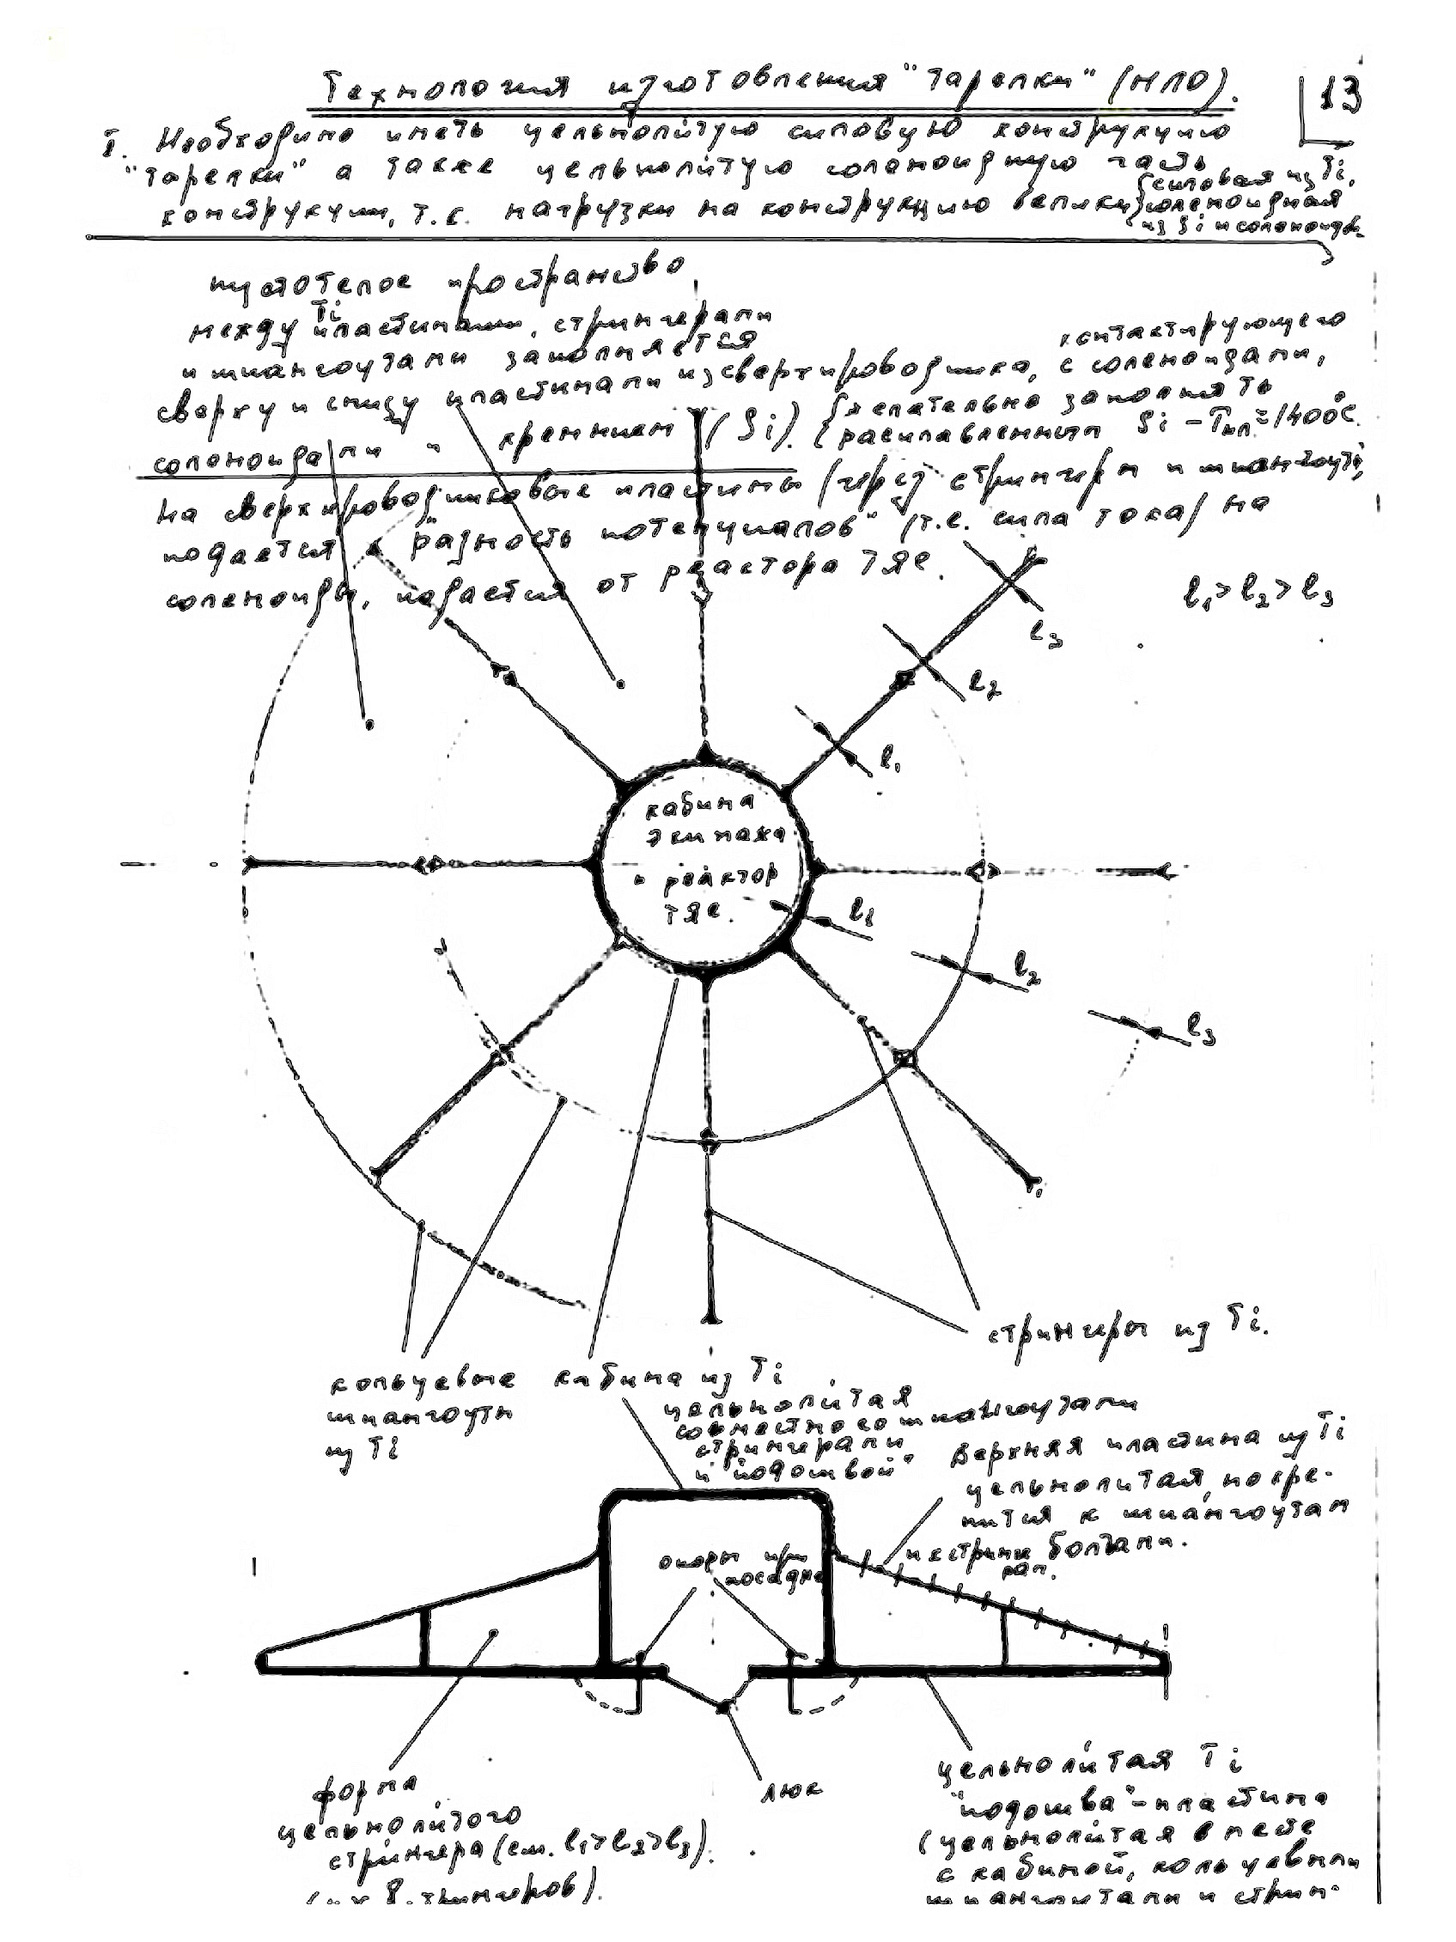 Технология изготовления "тарелки" (НЛО).
13
I. Необходимо иметь цельнолитую силовую конструкцию
"тарелки" а также цельнолитую соленоидную часть
конструкции, т.к. нагрузки на конструкцию велики
{силовая из Ti,
соленоидная
из Si и соленоидов
пустотелое пространство
между Ti пластинами, стрингерами
и шпангоутами заполняется
сверху и снизу пластинами из сверхпроводника, контактирующего с соленоидами,
соленоидами и кремнием (Si). {желательно заполнять
расплавленным Si - Tпл ≈ 1400°C.
На сверхпроводниковые пластины (через стрингеры и шпангоуты)
подается "разность потенциалов" (т.е. сила тока) на
соленоиды, подается от реактора ТЯС.
l₁ > l₂ > l₃
l₃
l₂
l₁
кабина
экипажа
и реактор
ТЯС.
l₁
l₂
l₃
стрингеры из Ti.
кольцевые
шпангоуты
из Ti
кабина из Ti
цельнолитая
совместно со шпангоутами
стрингерами
и "подошвой"
верхняя пластина из Ti
цельнолитая, но кре-
пится к шпангоутам
и стринге
рам. болтами.
опоры при
посадке
форма
цельнолитого
стрингера (см. l₁>l₂>l₃).
8 стрингеров).
люк
цельнолитая Ti
"подошва"-пластина
(цельнолитая вместе
с кабиной, кольцевыми
шпангоутами и стрин-